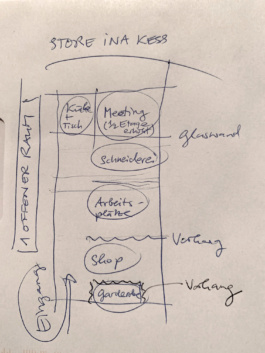 STORE INA KESS
Küche
+
Tisch
Meeting
(½ Etage
erhöht)
Glaswand
Schneiderei
1 OFFENER RAUM
Arbeits-
plätze
Vorhang
Shop
Eingang
Garderobe
Vorhang